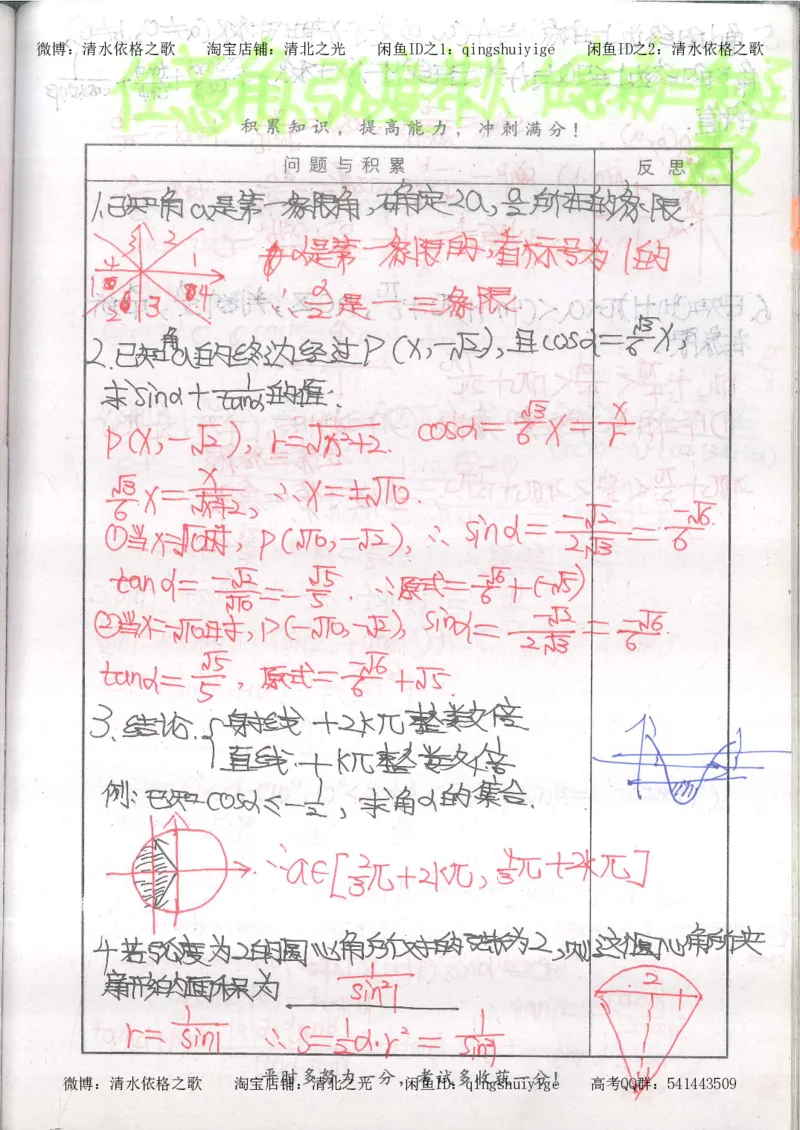 微博：清水依格之歌 淘宝店铺：清北之光 闲鱼ID之1：qingshuiyige 闲鱼ID之2：清水依格之歌
任意角、弧度制、任意角三角函数
积累知识，提高能力，冲刺满分！
问题与积累 反思
1.已知角α是第一象限角，确定2α，α/2所在的象限.
3 2
4 1
1 4
2 3
α是第一象限的，看标号为1的
∴α/2是一、三象限
2.已知角α的终边经过P(x,-√2)，且cosα=√3/6 x，
求sinα+1/tanα的值.
P(x,-√2), r=√x²+2. cosα=√3/6 x=x/r
√3/6 x=x/√x²+2, ∴x=±√10.
①当x=√10时，P(√10,-√2), ∴sinα=-√2/2√3=-√6/6.
tanα=-√2/√10=-√5/5, ∴原式=-√6/6+(-√5)
②当x=-√10时，P(-√10,-√2), sinα=-√2/2√3=-√6/6.
tanα=√5/5, 原式=-√6/6+√5.
3.结论.{射线 +2kπ整数倍
直线 +kπ整数倍
例：已知cosα≤-1/2，求角α的集合.
∴α∈[2/3π+2kπ, 4/3π+2kπ]
4.若弧度为2的圆心角所对的弦长为2，则这个圆心角所夹
扇形的面积为 1/sin²1
2
r=1/sin1 ∴S=1/2α·r²=1/sin²1
平时多努力一分，考试多收获一分！
微博：清水依格之歌 淘宝店铺：清北之光 闲鱼ID：qingshuiyige 高考QQ群：541443509